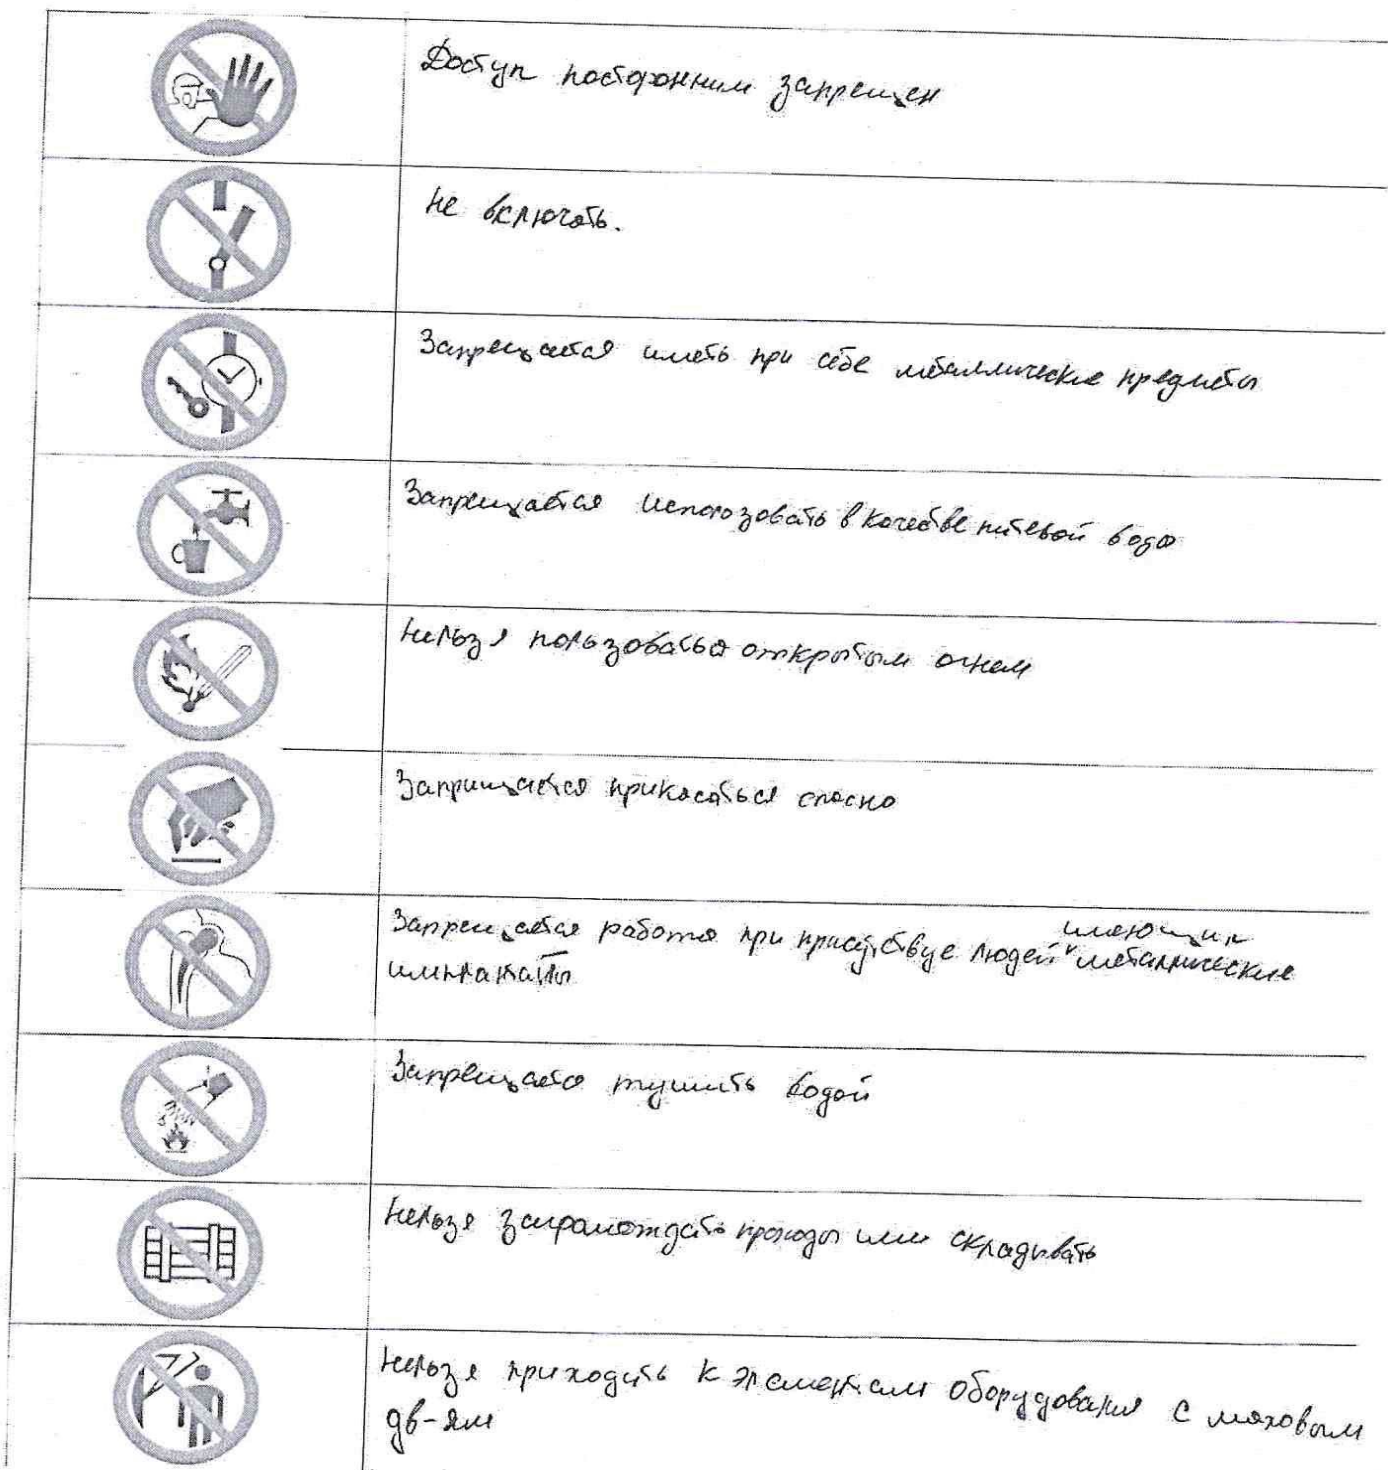 Доступ посторонним запрещен
Не включать.
Запрещается иметь при себе металлические предметы
Запрещается использовать в качестве питьевой воды
Нельзя пользоваться открытым огнем
Заприщается прикасаться опасно
Запрещается работа при присутствуе людей имеющих металлические
импланкаты
Запрещается тушить водой
Нельзя загромождать проходы или складывать
Нельзя приходить к элементам оборудования с маховым
дв-ям